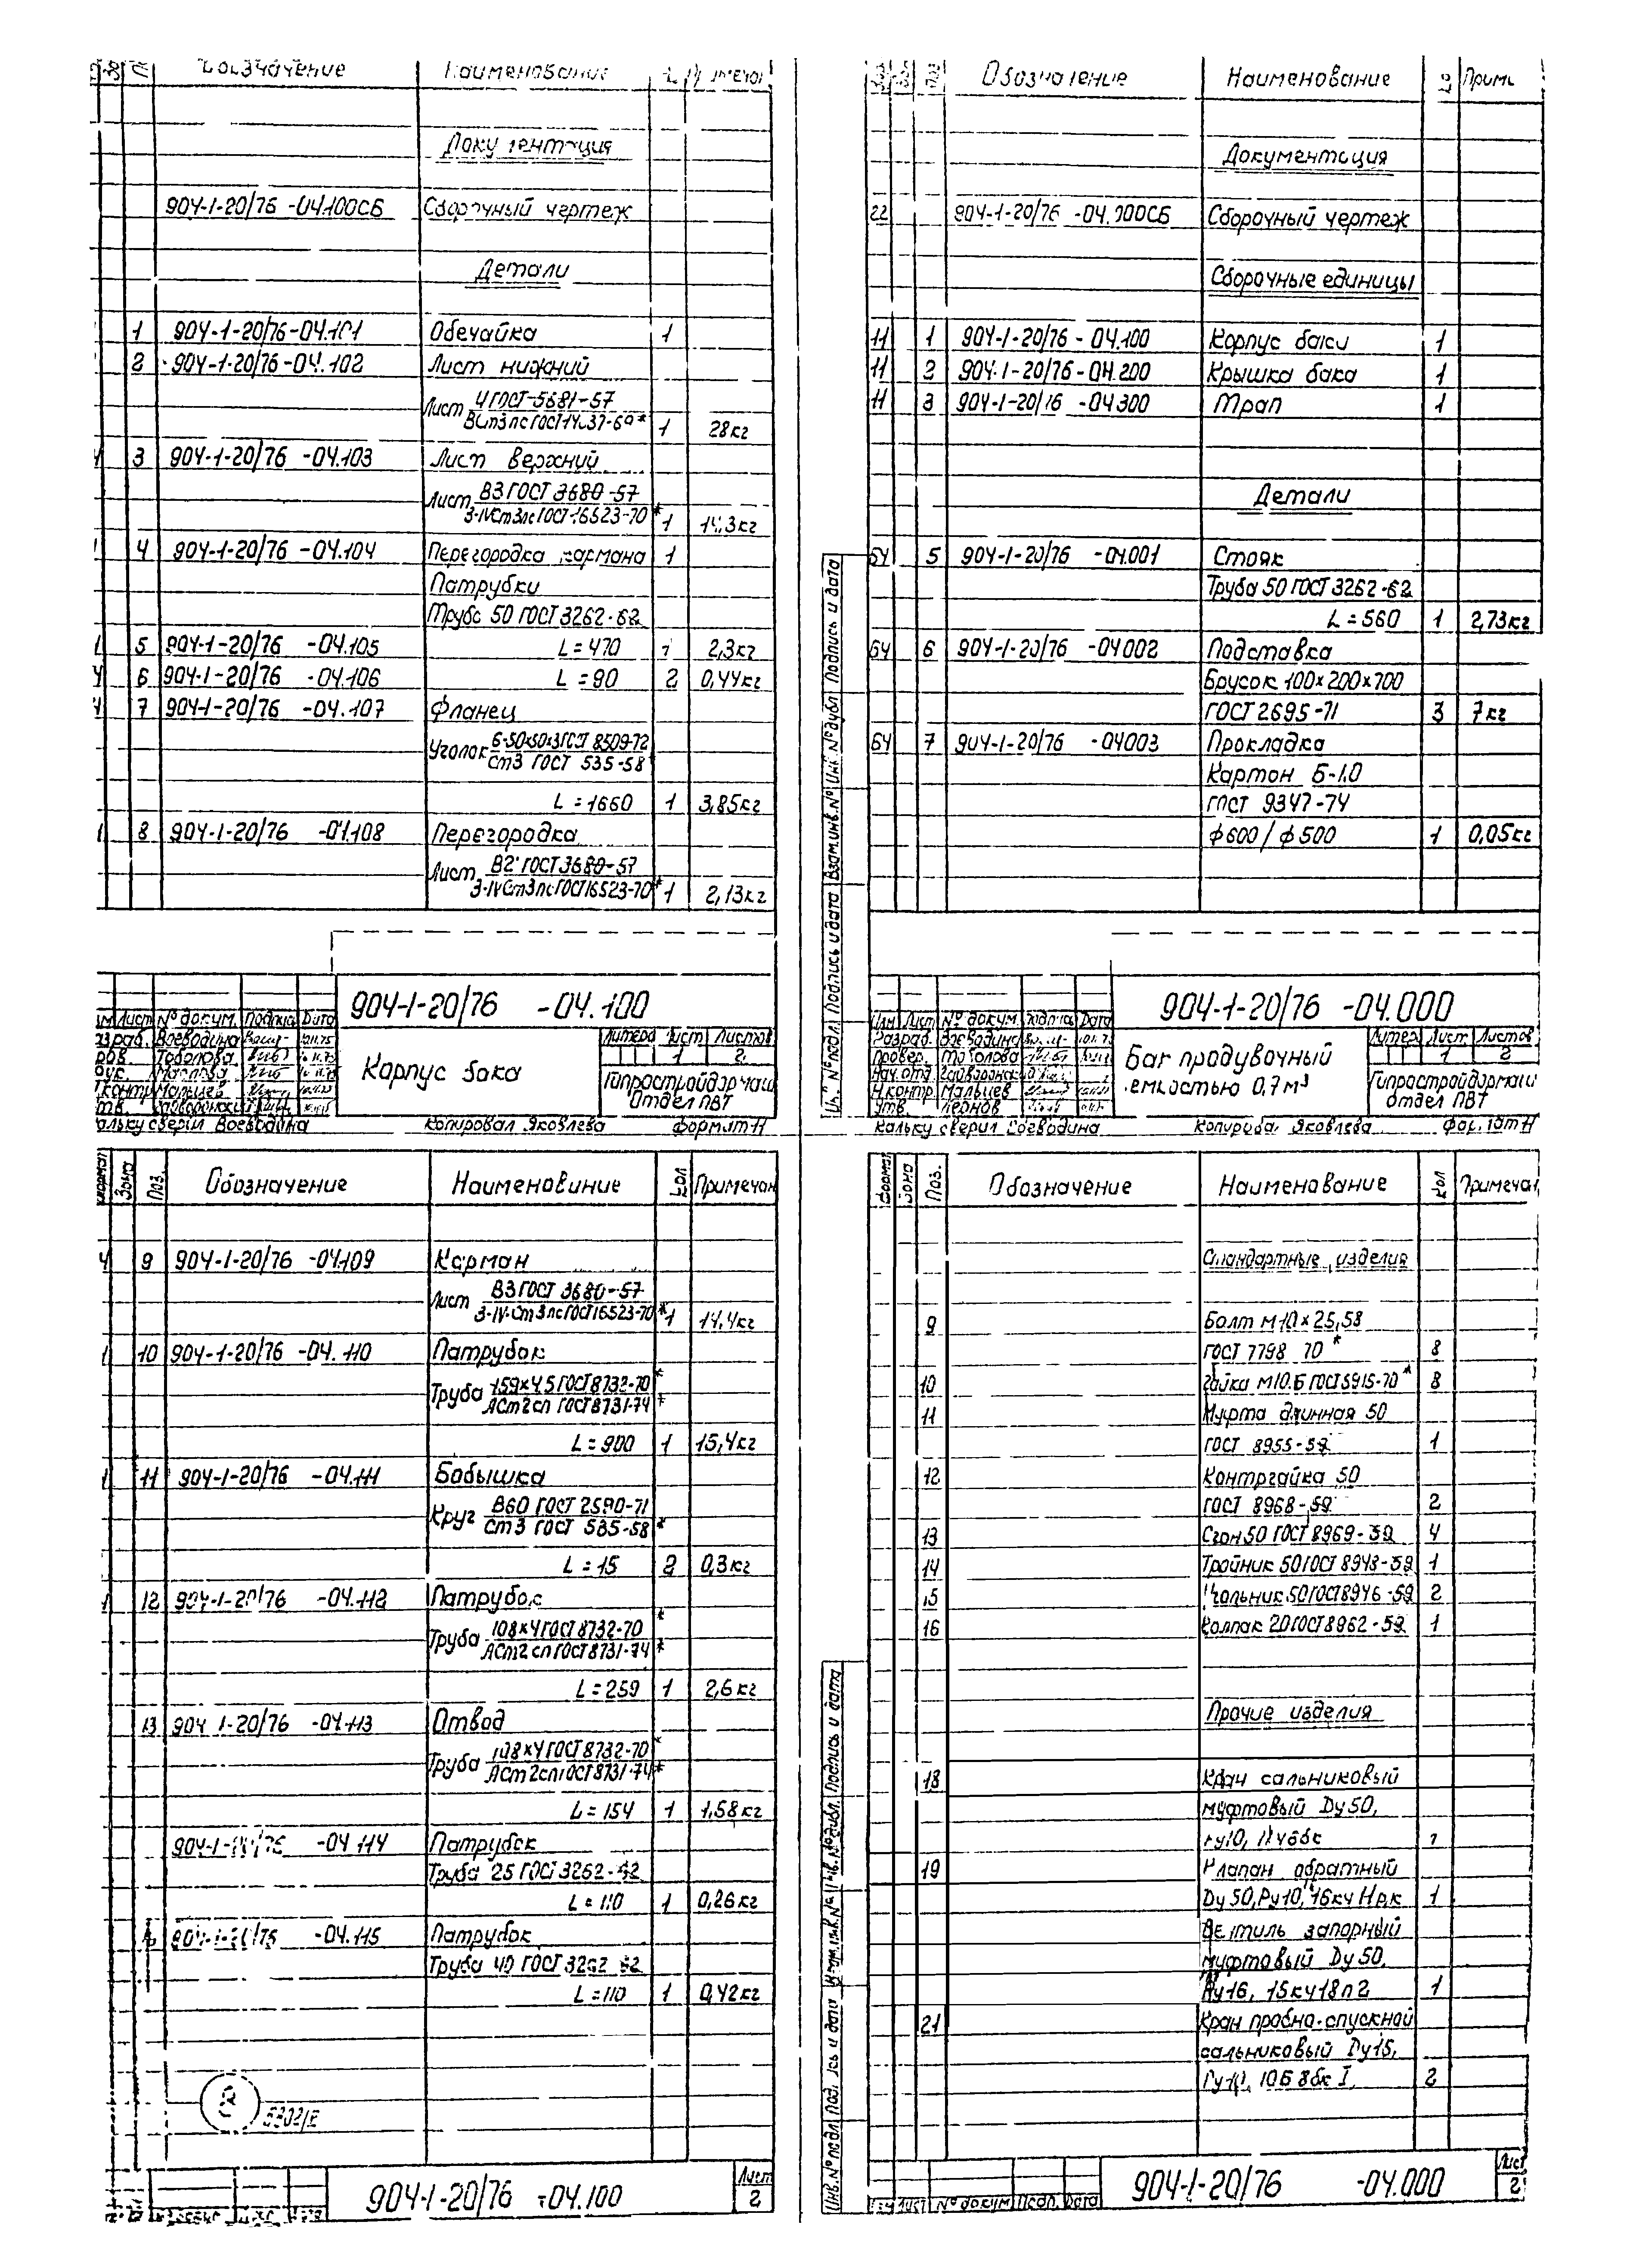 Обозначение Наименование
Документация
904-1-20/76 -04.100СБ Сборочный чертеж
Детали
1 904-1-20/76-04.101 Обечайка 1
2 904-1-20/76-04.102 Лист нижний
Лист 4 ГОСТ-5681-57
ВСт3пс ГОСТ 14637-69* 1 28кг
3 904-1-20/76 -04.103 Лист верхний
Лист В3 ГОСТ 3680-57
3-IVСт3пс ГОСТ 16523-70* 1 14,3кг
4 904-1-20/76 -04.104 Перегородка кармана 1
Патрубки
Труба 50 ГОСТ 3262-62
5 904-1-20/76 -04.105 L=470 1 2,3кг
6 904-1-20/76 -04.106 L=90 2 0,44кг
7 904-1-20/76 -04.107 Фланец
Уголок Б-50×50×3 ГОСТ 8509-72
Ст3 ГОСТ 535-58
L=1660 1 3,85кг
8 904-1-20/76 -04.108 Перегородка
Лист В2 ГОСТ 3680-57
3-IVСт3пс ГОСТ 16523-70* 1 2,13кг
904-1-20/76 -04.100
Лист № докум. Подпись Дата
Разраб. Воеводина
Тоболова
Н.контр. Мальцев
Утв.
Корпус бака
Литера Лист Листов
1 2
Гипростройдормаш
Отдел ПВТ
Кальку сверил Воеводина Копировал Яковлева Формат 11
Обозначение Наименование Приме
Документация
22 904-1-20/76 -04.000СБ Сборочный чертеж
Сборочные единицы
11 1 904-1-20/76 - 04.100 Корпус бака 1
11 2 904-1-20/76-04.200 Крышка бака 1
11 3 904-1-20/76 -04300 Трап 1
Детали
64 5 904-1-20/76 -04.001 Стояк
Труба 50 ГОСТ 3262-62
L=560 1 2,73кг
64 6 904-1-20/76 -04002 Подставка
Брусок 100×200×700
ГОСТ 2695-71 3 7кг
64 7 904-1-20/76 -04003 Прокладка
Картон Б-1.0
ГОСТ 9347-74
ф600/ф500 1 0,05кг
Инв.№ подл. Подпись и дата Взам.инв.№ Инв.№ дубл Подпись и дата
904-1-20/76 -04.000
Изм Лист № докум. Подпись Дата
Разраб. Воеводина
Провер. Тоболова
Нач.отд.
Н.контр. Мальцев
Утв. Чернов
Бак продувочный
емкостью 0,7м³
Литера Лист Листов
1 2
Гипростройдормаш
Отдел ПВТ
Кальку сверил Воеводина Копировал Яковлева Формат 11
Формат Зона Поз. Обозначение Наименование Кол Примечан
9 904-1-20/76 -04.109 Карман
Лист В3 ГОСТ 3680-57
3-IV-Ст3пс ГОСТ 16523-70* 1 14,4кг
10 904-1-20/76 -04.110 Патрубок
Труба 159×4,5 ГОСТ 8732-70*
АСт2сп ГОСТ 8731-74*
L=900 1 15,4кг
11 904-1-20/76 -04.111 Бобышка
Круг В60 ГОСТ 2590-71
Ст3 ГОСТ 535-58*
L=15 2 0,3кг
12 904-1-20/76 -04.112 Патрубок
Труба 108×4 ГОСТ 8732-70*
АСт2сп ГОСТ 8731-74*
L=259 1 2,6кг
13 904-1-20/76 -04.113 Отвод
Труба 108×4 ГОСТ 8732-70*
АСт2сп ГОСТ 8731-74*
L=154 1 1,58кг
904-1-20/76 -04.114 Патрубок
Труба 25 ГОСТ 3262-62
L=110 1 0,26кг
904-1-20/76 -04.115 Патрубок
Труба 40 ГОСТ 3262-62
L=110 1 0,42кг
904-1-20/76 -04.100
Лист
2
Формат Зона Поз. Обозначение Наименование Кол Примечан
Стандартные изделия
9 Болт М10×25,58
ГОСТ 7798 70* 8
10 Гайка М10.Б ГОСТ 5915-70* 8
11 Муфта длинная 50
ГОСТ 8955-59 1
12 Контргайка 50
ГОСТ 8968-59 2
13 Сгон 50 ГОСТ 8969-59 4
14 Тройник 50 ГОСТ 8948-59 1
15 Угольник 50 ГОСТ 8946-59 2
16 Колпак 20 ГОСТ 8962-59 1
Прочие изделия
18 Кран сальниковый
муфтовый Dу50,
Ру10, 11ч6бк 1
19 Клапан обратный
Dу50, Ру10, 16кч11рк 1
Вентиль запорный
муфтовый Dу50,
Ру16, 15кч18п2 1
21 Кран пробно-спускной
сальниковый Dу15,
Ру10, 10Б8бк I, 2
Инв.№ подл Подпись и дата Взам.инв.№ Инв.№ дубл. Подпись и дата
Лист № докум Подп. Дата
904-1-20/76 -04.000
Лист
2